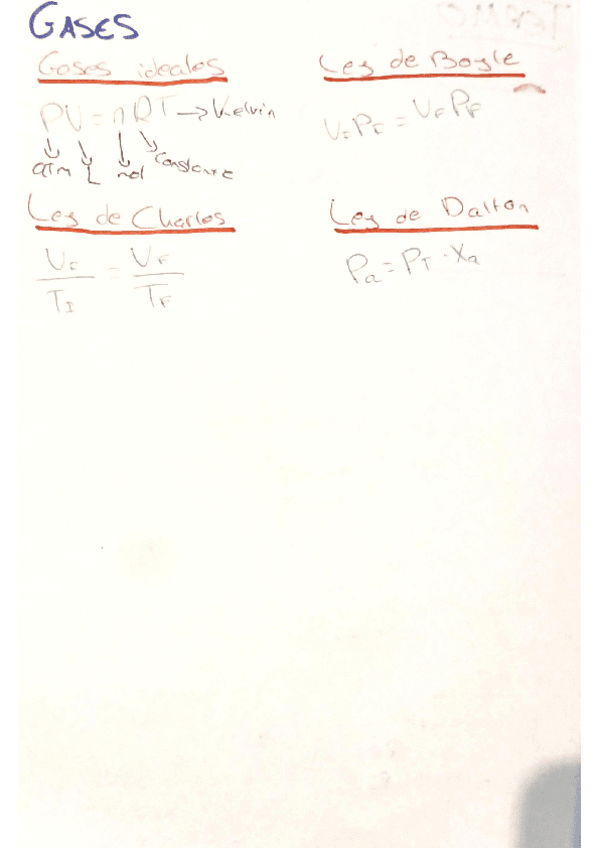 GASES
Gases ideales
PV = nRT → Kelvin
atm L mol constante
Ley de Boyle
V_I P_I = V_F P_F
Ley de Charles
V_I / T_I = V_F / T_F
Ley de Dalton
P_a = P_T · X_a